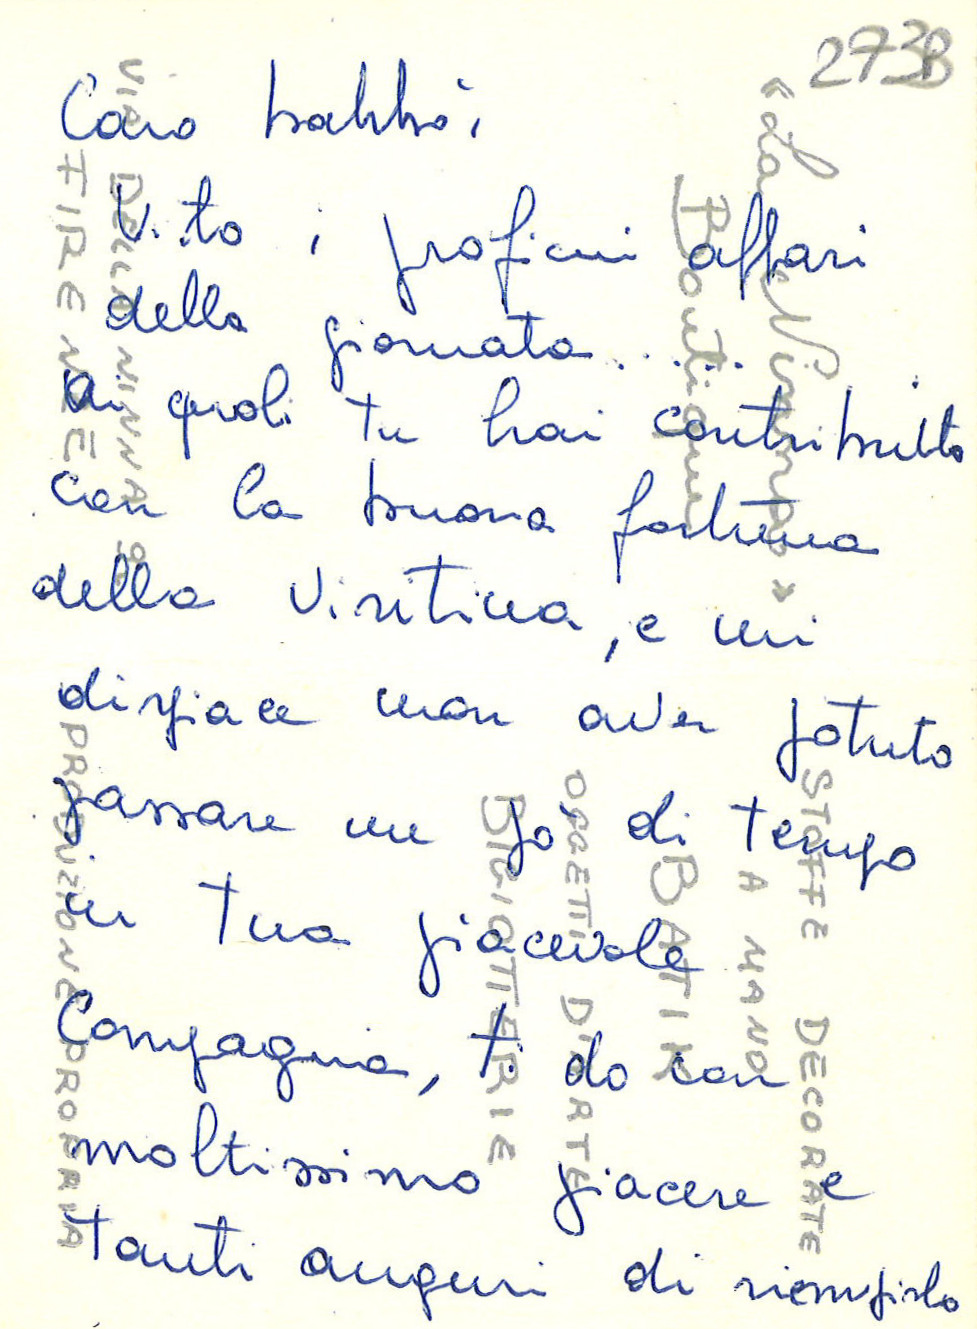 273B
Caro babbo,
Visto i proficui affari
della giornata.....
ai quali tu hai contribuito
con la buona fortuna
della visitina, e mi
dispiace non aver potuto
passare un po' di tempo
in tua piacevole
Compagnia, ti do con
moltissimo piacere e
tanti auguri di riempirlo
«La Ninna»
Boutique
VIA DELLA NINNA 9R
FIRENZE
STOFFE DECORATE
A MANO
BATIK
OGGETTI D'ARTE
BIGIOTTERIE
PRODUZIONE PROPRIA